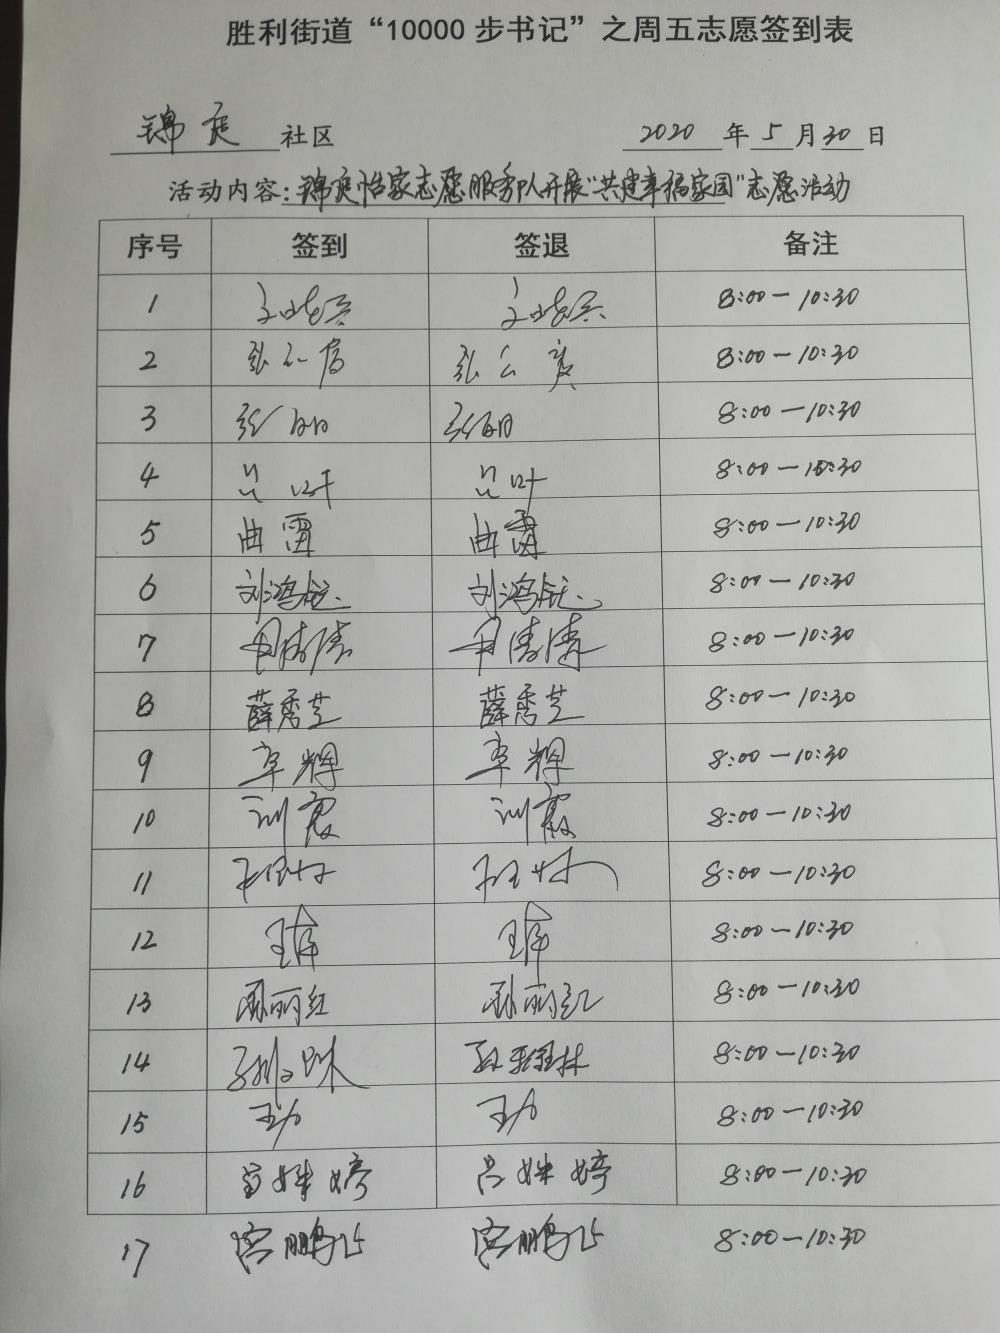 胜利街道“10000步书记”之周五志愿签到表
锦庭 社区 2020 年 5 月 30 日
活动内容：锦庭怡家志愿服务队开展“共建幸福家园”志愿活动
序号 签到 签退 备注
1 8:00-10:30
2 张 张 8:00-10:30
3 张 张 8:00-10:30
4 吕叶 吕叶 8:00-10:30
5 曲雷 曲雷 8:00-10:30
6 刘鸿 刘鸿 8:00-10:30
7 8:00-10:30
8 薛秀芝 薛秀芝 8:00-10:30
9 辉 辉 8:00-10:30
10 霞 霞 8:00-10:30
11 8:00-10:30
12 王 王 8:00-10:30
13 孙丽红 孙丽红 8:00-10:30
14 孙 孙 8:00-10:30
15 王 王 8:00-10:30
16 吕姝婷 吕姝婷 8:00-10:30
17 宫鹏 宫鹏 8:00-10:30